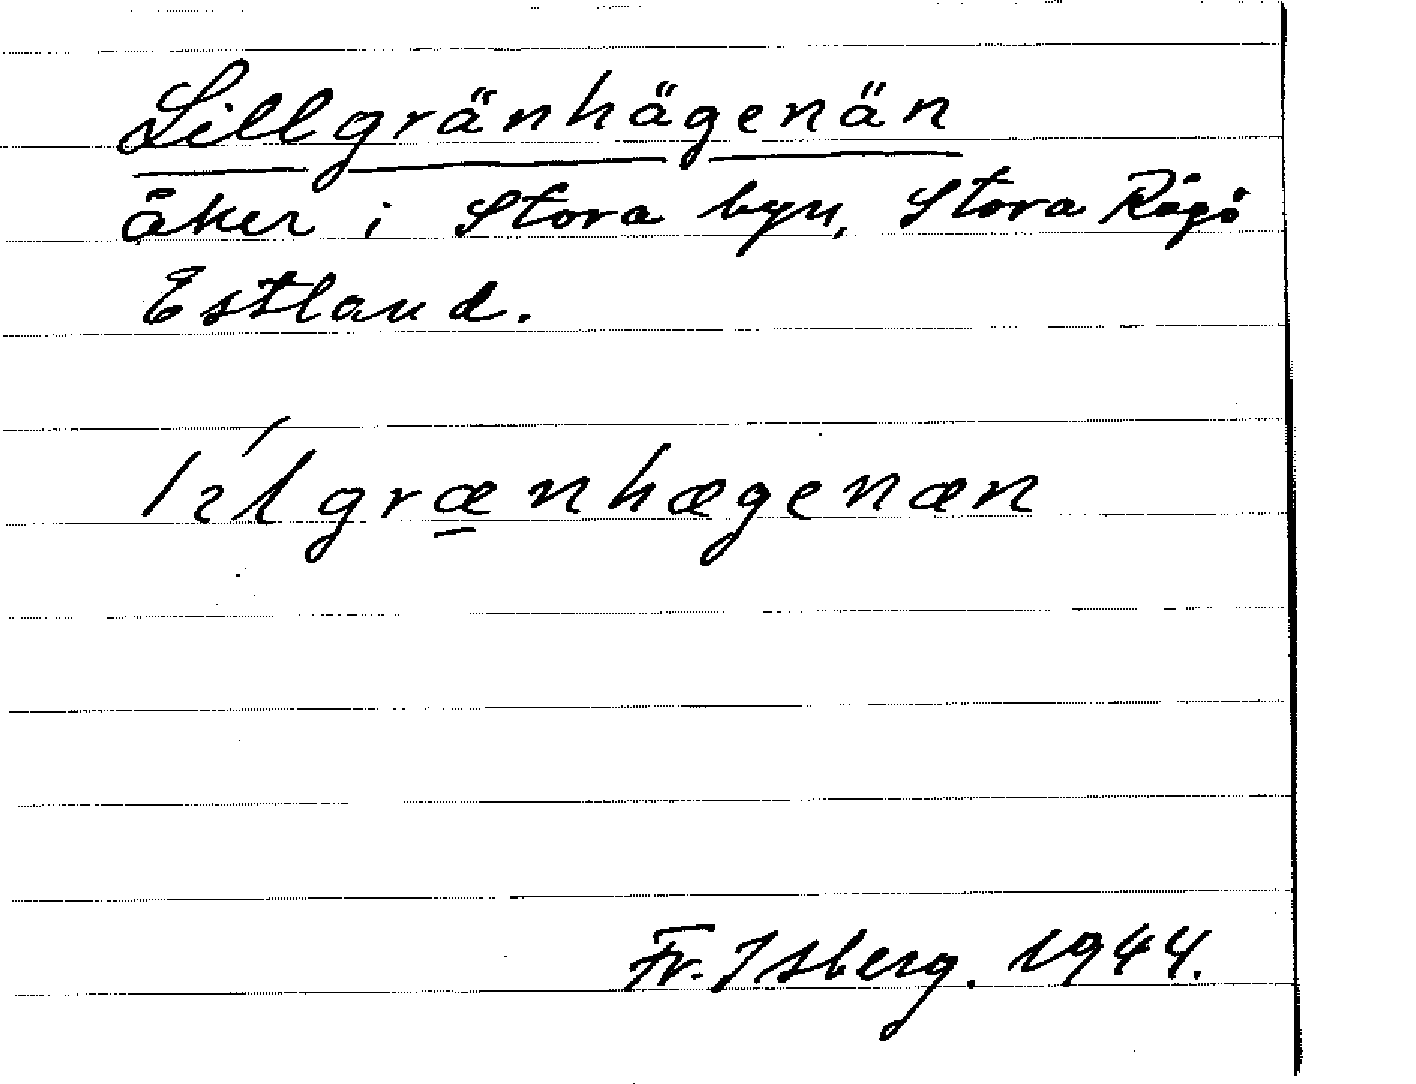 Lillgränhägenän
åker i Stora byn, Stora Rågö
Estland.
lı́lgræ̱nhægenæn
Fr. Isberg. 1944.